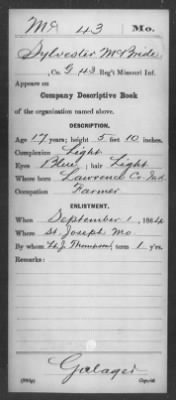 Mc 43 Mo.
Sylvester McBride
, Co. G 43 Reg't Missouri Inf.
Appears on
Company Descriptive Book
of the organization named above.
DESCRIPTION.
Age 17 years; height 5 feet 10 inches.
Complexion Light
Eyes Blue; hair Light
Where born Lawrence Co. Ind.
Occupation Farmer
ENLISTMENT.
When September 1, 1864
Where St. Joseph Mo
By whom Thompson; term 1 y'rs.
Remarks:
Galager
Copyist.